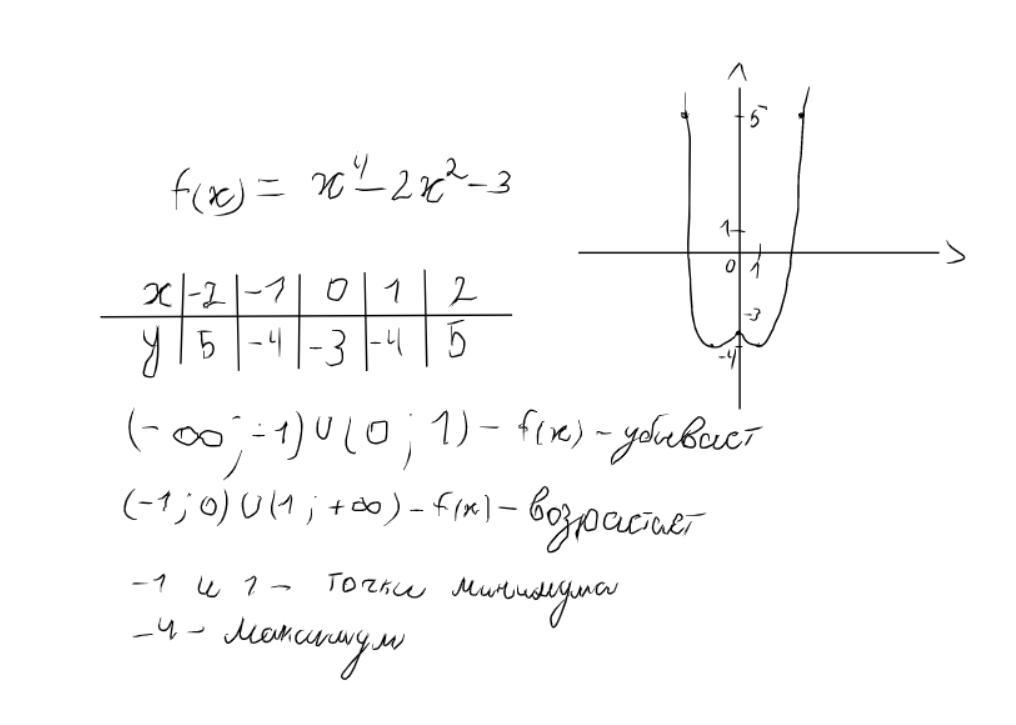 f(x) = x⁴ - 2x² - 3
x | -2 | -1 | 0 | 1 | 2
y | 5 | -4 | -3 | -4 | 5
(-∞; -1) ∪ (0; 1) - f(x) - убывает
(-1; 0) ∪ (1; +∞) - f(x) - возрастает
-1 и 1 - точки минимума
-4 - максимум
5
1
0 1
-3
-4